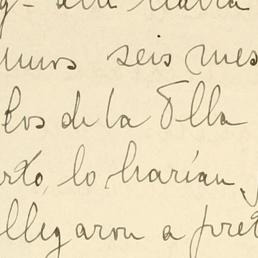 seis mes
los de la Olla
rto, lo harían,
llegaron a pret